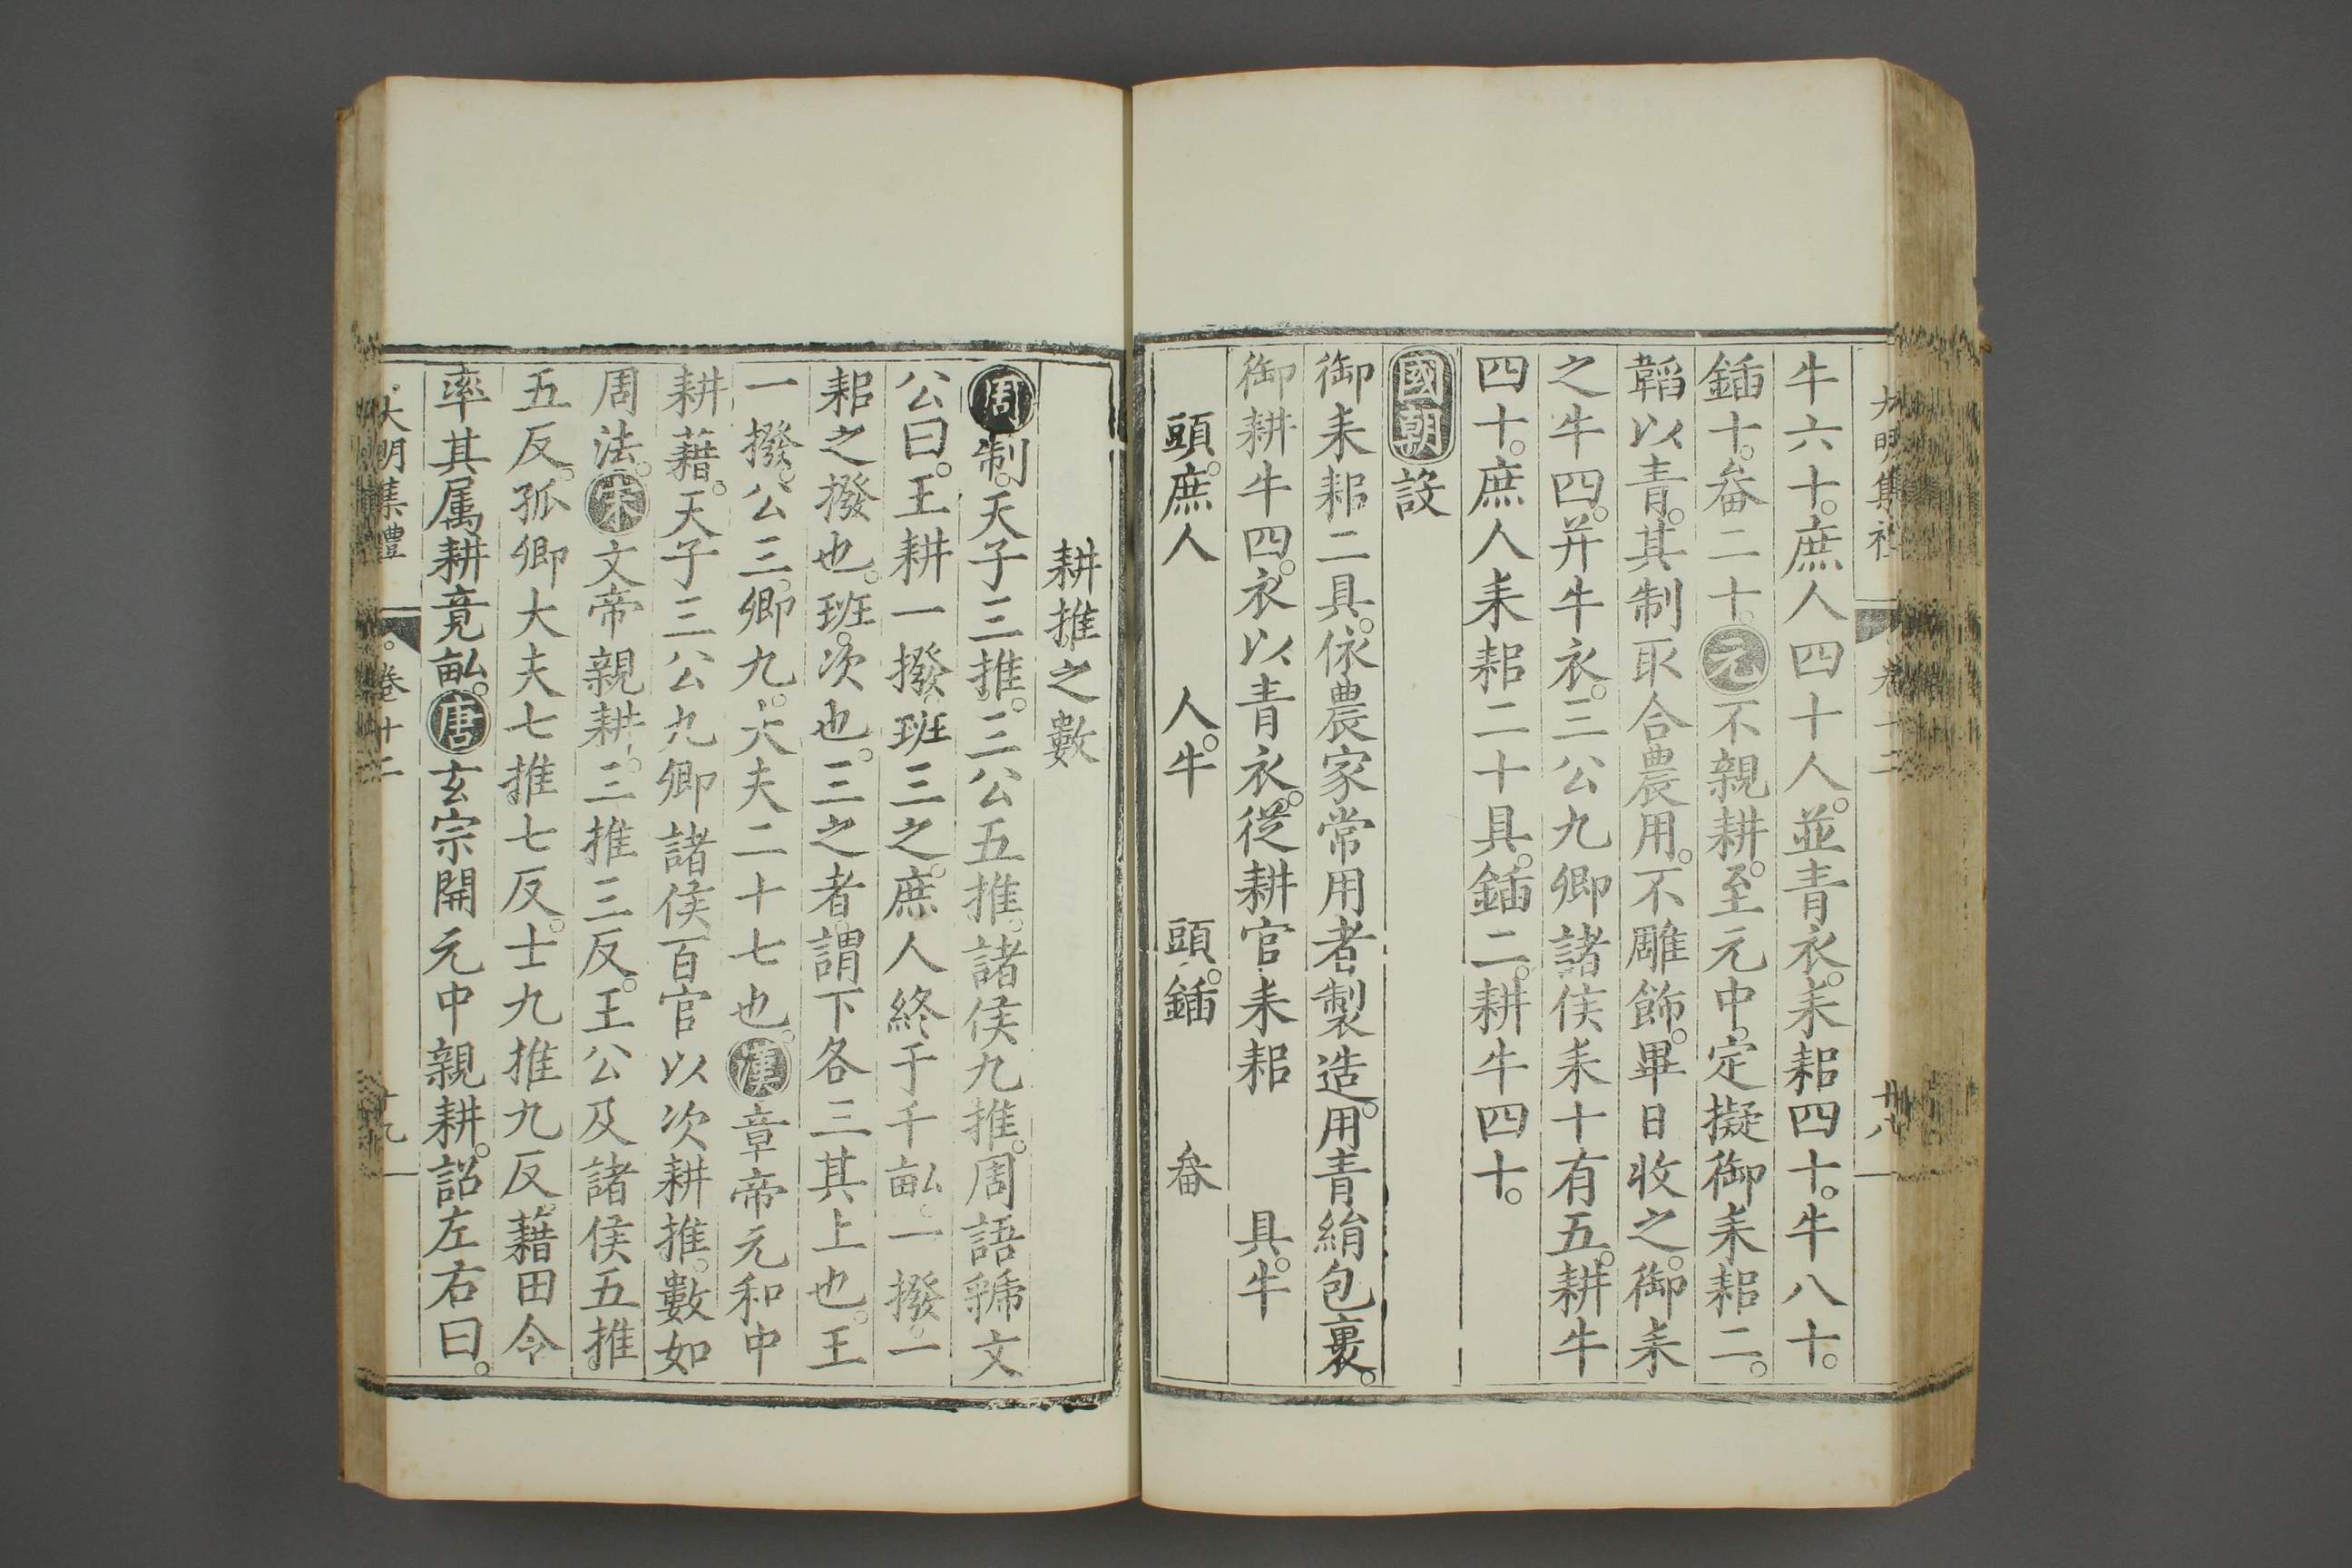 牛六十。庶人四十人。並青衣。耒耜四十。牛八十。
鍤十。畚二十。元不親耕。至元中。定擬御耒耜二。
韜以青。其制取合農用。不雕飾。畢日收之。御耒
之牛四。并牛衣。三公九卿諸侯耒十有五。耕牛
四十。庶人耒耜二十具。鍤二。耕牛四十。
國朝設
御耒耜二具。依農家常用者製造。用青絹包裹。
御耕牛四。衣以青衣。從耕官耒耜　具。牛
頭。庶人　人。牛　頭。鍤　畚
耕推之數
周制。天子三推。三公五推。諸侯九推。周語虢文
公曰。王耕一撥。班三之。庶人終于千畝。一撥。一
耜之撥也。班。次也。三之者。謂下各三其上也。王
一撥。公三。卿九。大夫二十七也。漢章帝元和中
耕藉。天子三公九卿諸侯百官以次耕推。數如
周法。宋文帝親耕。三推三反。王公及諸侯五推
五反。孤卿大夫七推七反。士九推九反。藉田令
率其属耕竟畝。唐玄宗開元中親耕。詔左右曰。
大明集禮　卷十二　十九